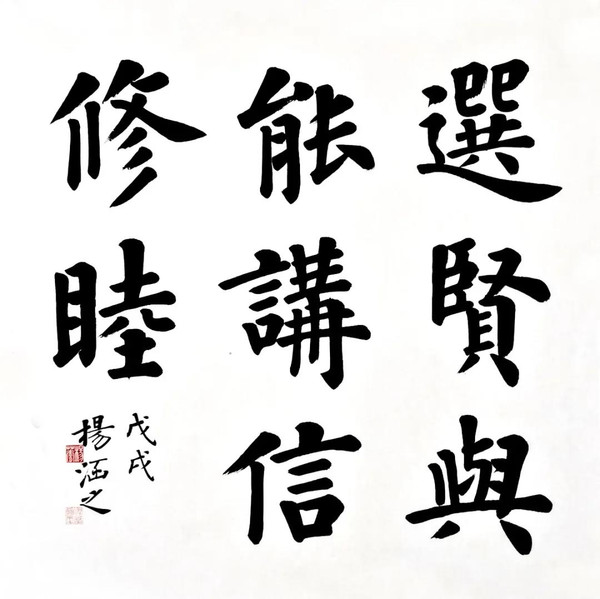 選賢與
能講信
修睦
戊戌
楊涵之